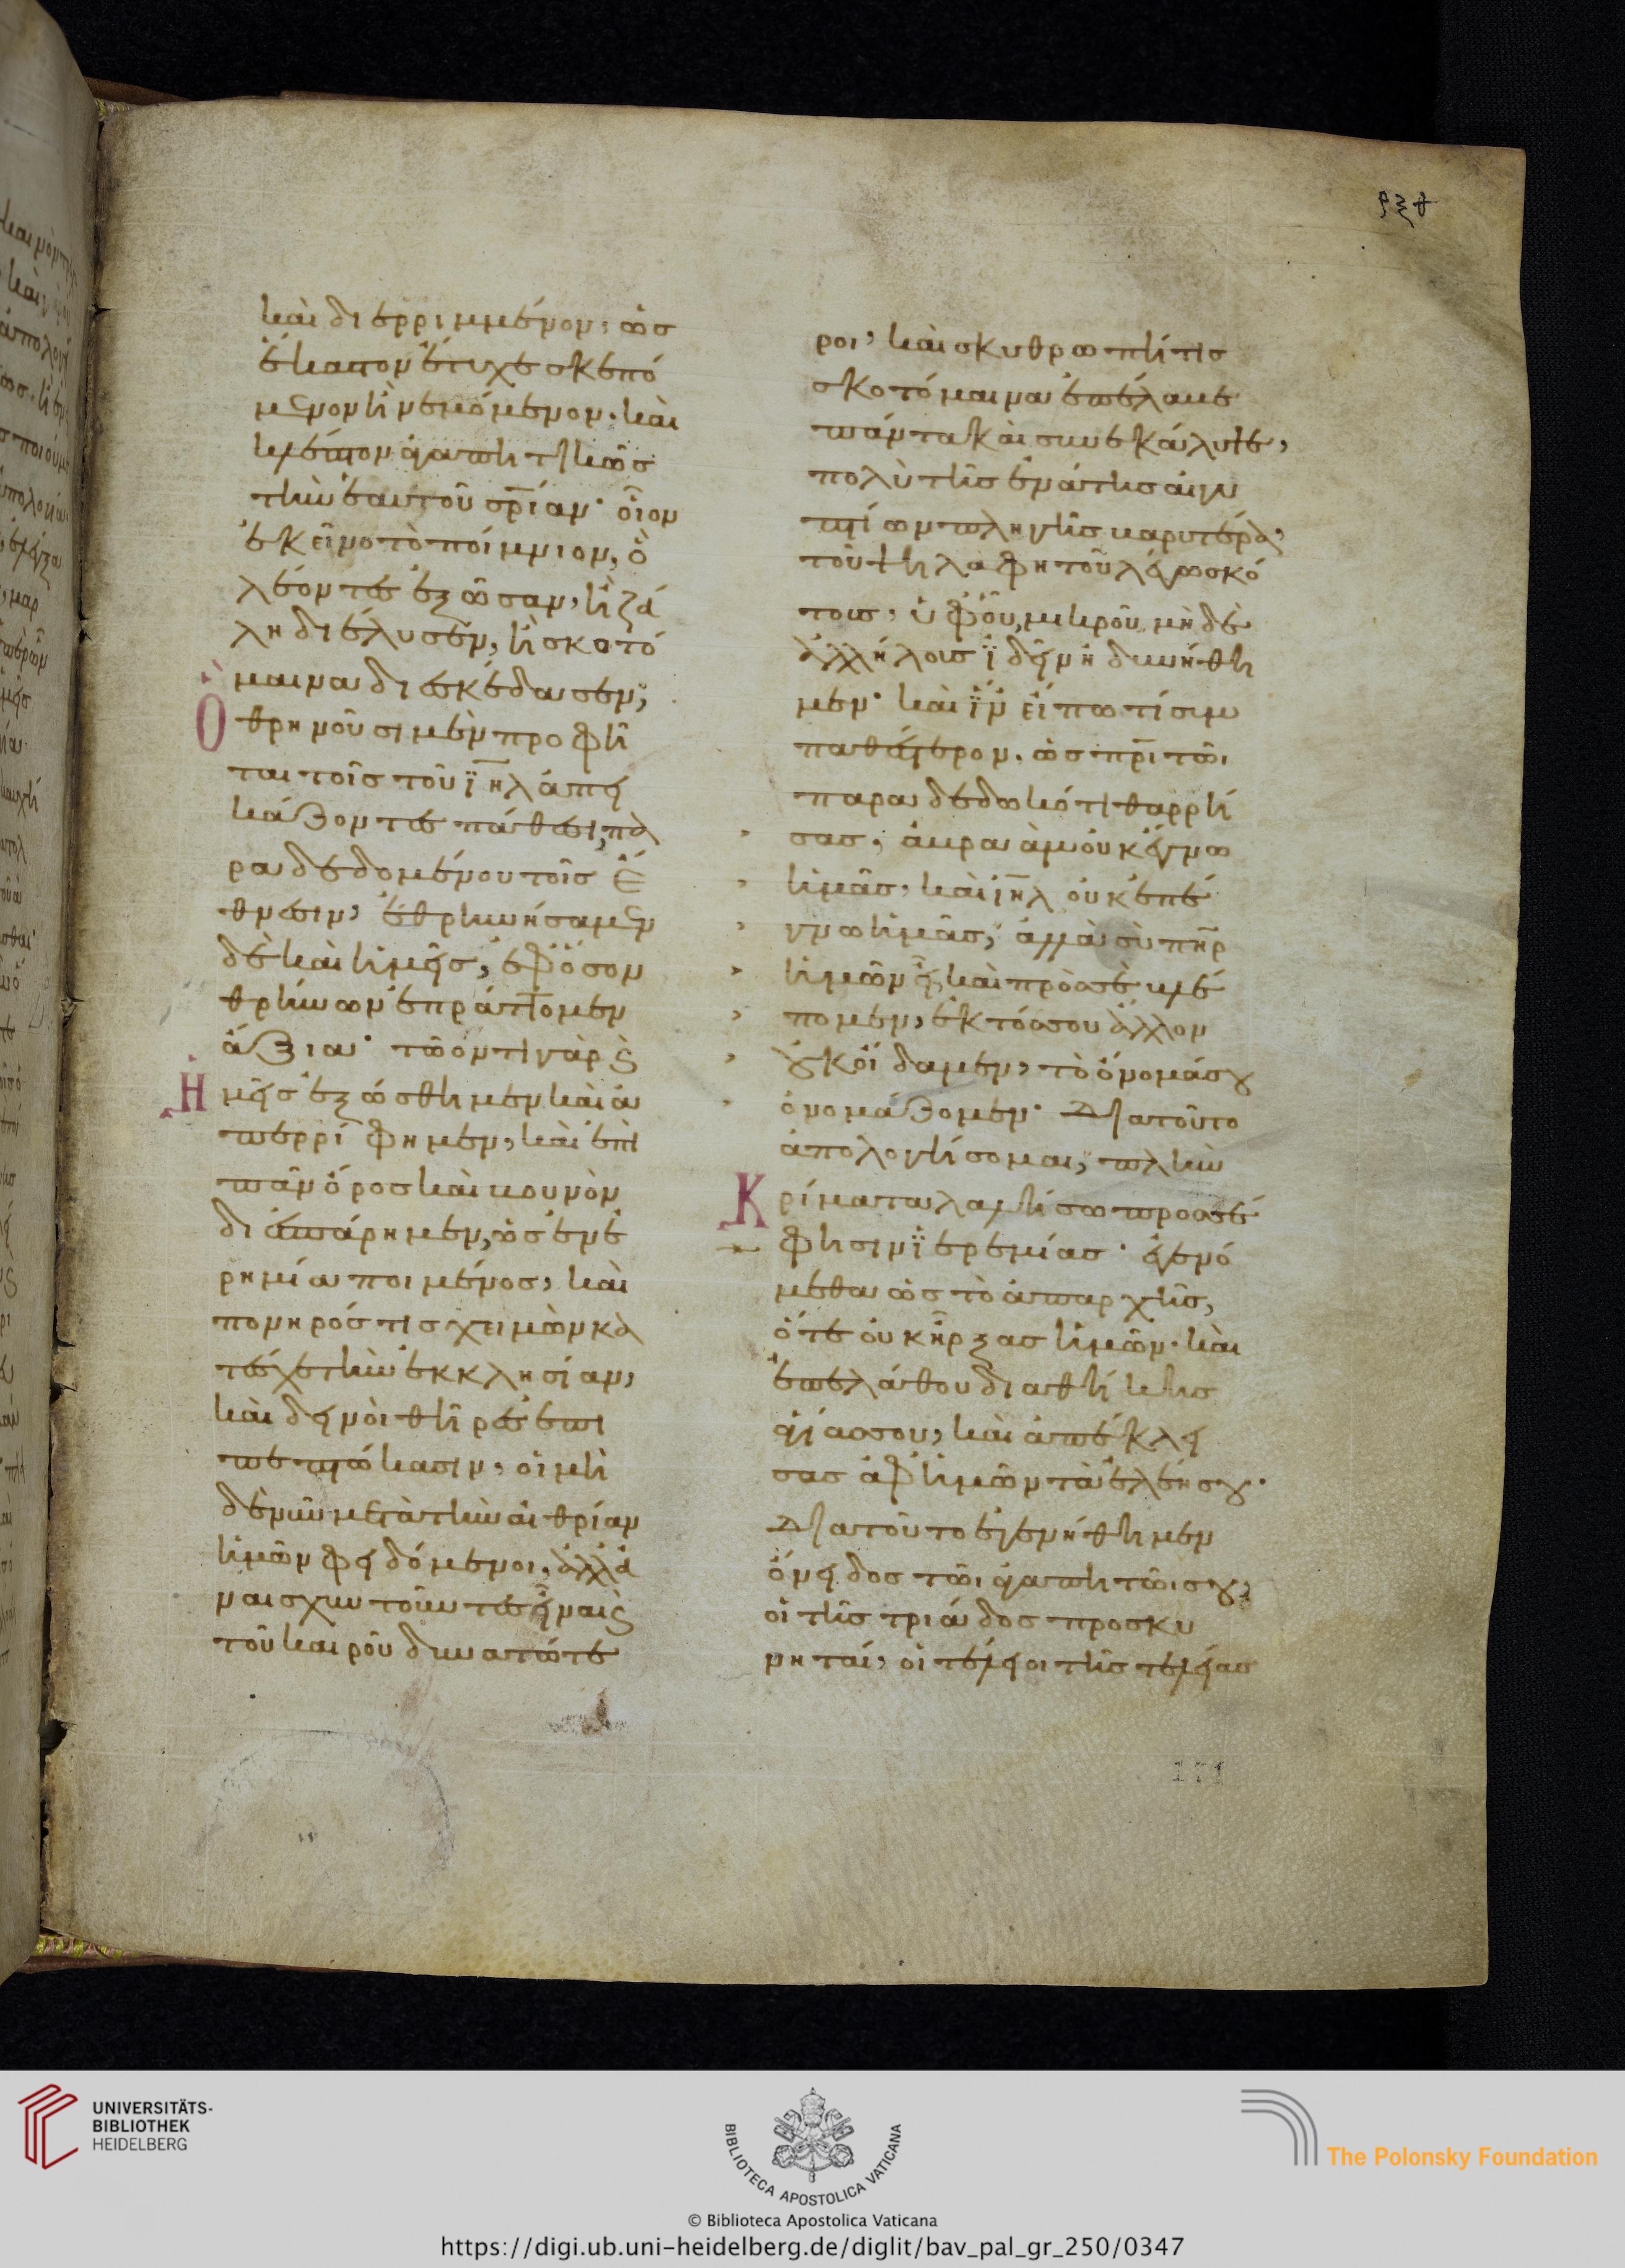 ρξθ
καὶ διερριμμένον, ὡς
ἕκαστον ἔτυχε σκεπό
μενον ἢ νεμόμενον. καὶ
κλέπτον ἀγαπητικῶς
τὴν ἑαυτοῦ σρίαν· οἷον
ἐκεῖνο τὸ ποίμνιον, ὃ
λέοντες ἐξῶσαν, ἢ ζά
λη διέλυσεν, ἢ σκοτό
μαινα διεσκέδασεν,
Ὃ θρηνοῦσι μὲν προφῆ
ται τοῖς τοῦ ϊηλ ἀπει
κάζοντες πάθεσι, πα
ραδεδομένου τοῖς ἔ
θνεσιν, ἐθρηνήσαμεν
δὲ καὶ ἡμεῖς, ἐφ' ὅσον
θρήνων ἐπράττομεν
ἄξια· τῶ ὄντι γὰρ ϗ
Ἡμεῖς ἐξώσθημεν καὶ ἀ
περρίφημεν, καὶ ἐπὶ
πᾶν ὄρος καὶ βουνὸν
διεσπάρημεν, ὡς ἐν ἐ
ρημία ποιμένος, καὶ
πονηρός τις χειμὼν κα
τέσχε τὴν ἐκκλησίαν,
καὶ δεινοὶ θῆρες ἐπι
πεπτώκασιν, οἳ μη
δὲ νῦν μετὰ τὴν αἰθρίαν
ἡμῶν φειδόμενοι, ἀλλ' ἀ
ναισχυντοῦντες εἶναι ϗ
τοῦ καιροῦ δυνατώτε
ροι, καὶ σκυθρωπή τις
σκοτόμαινα ἐπέλαβε
πάντα καὶ συνεκάλυψε,
πολὺ τῆς ἐνάτης αἰγυ
πτίων πληγῆς βαρυτέρα,
τοῦ ψηλαφητοῦ λέγω σκό
τους, ὑφ' οὗ μικροῦ μηδὲ
ἀλλήλους ϊδεῖν ἠδυνήθη
μεν· καὶ ϊν' εἴπω τί συμ
παθέστερον, ὡς πρι τῶι
παραδεδωκότι θαρρή
σας, ἁβραὰμ οὐκ ἔγνω
ἡμᾶς, καὶ ιηλ οὐκ ἐπέ
γνω ἡμᾶς, ἀλλὰ σὺ πηρ
ἡμῶν εἶ καὶ πρὸς σὲ βλέ
πομεν, ἐκτός σου ἄλλον
οὐκ οἴδαμεν, τὸ ὄνομά σου
ὀνομάζομεν· Διατοῦτο
ἀπολογήσομαι, πλὴν
Κρίματα λαλήσω πρὸς σέ
φησιν ϊερεμίας· ἐγενό
μεθα ὡς τὸ ἀπαρχῆς,
ὅτε οὐκ ἦρξας ἡμῶν. καὶ
ἐπελάθου διαθήκης
ἁγίας σου, καὶ ἀπέκλει
σας ἀφ' ἡμῶν τὰ ἐλέη σου.
Διατοῦτο ἐγενήθημεν
ὄνειδος τῶι ἀγαπητῶι σου,
οἱ τῆς τριάδος προσκυ
νηταί, οἱ τέλειοι τῆς τελείας
171
UNIVERSITÄTS-
BIBLIOTHEK
HEIDELBERG
BIBLIOTECA APOSTOLICA VATICANA
The Polonsky Foundation
© Biblioteca Apostolica Vaticana
https://digi.ub.uni-heidelberg.de/diglit/bav_pal_gr_250/0347